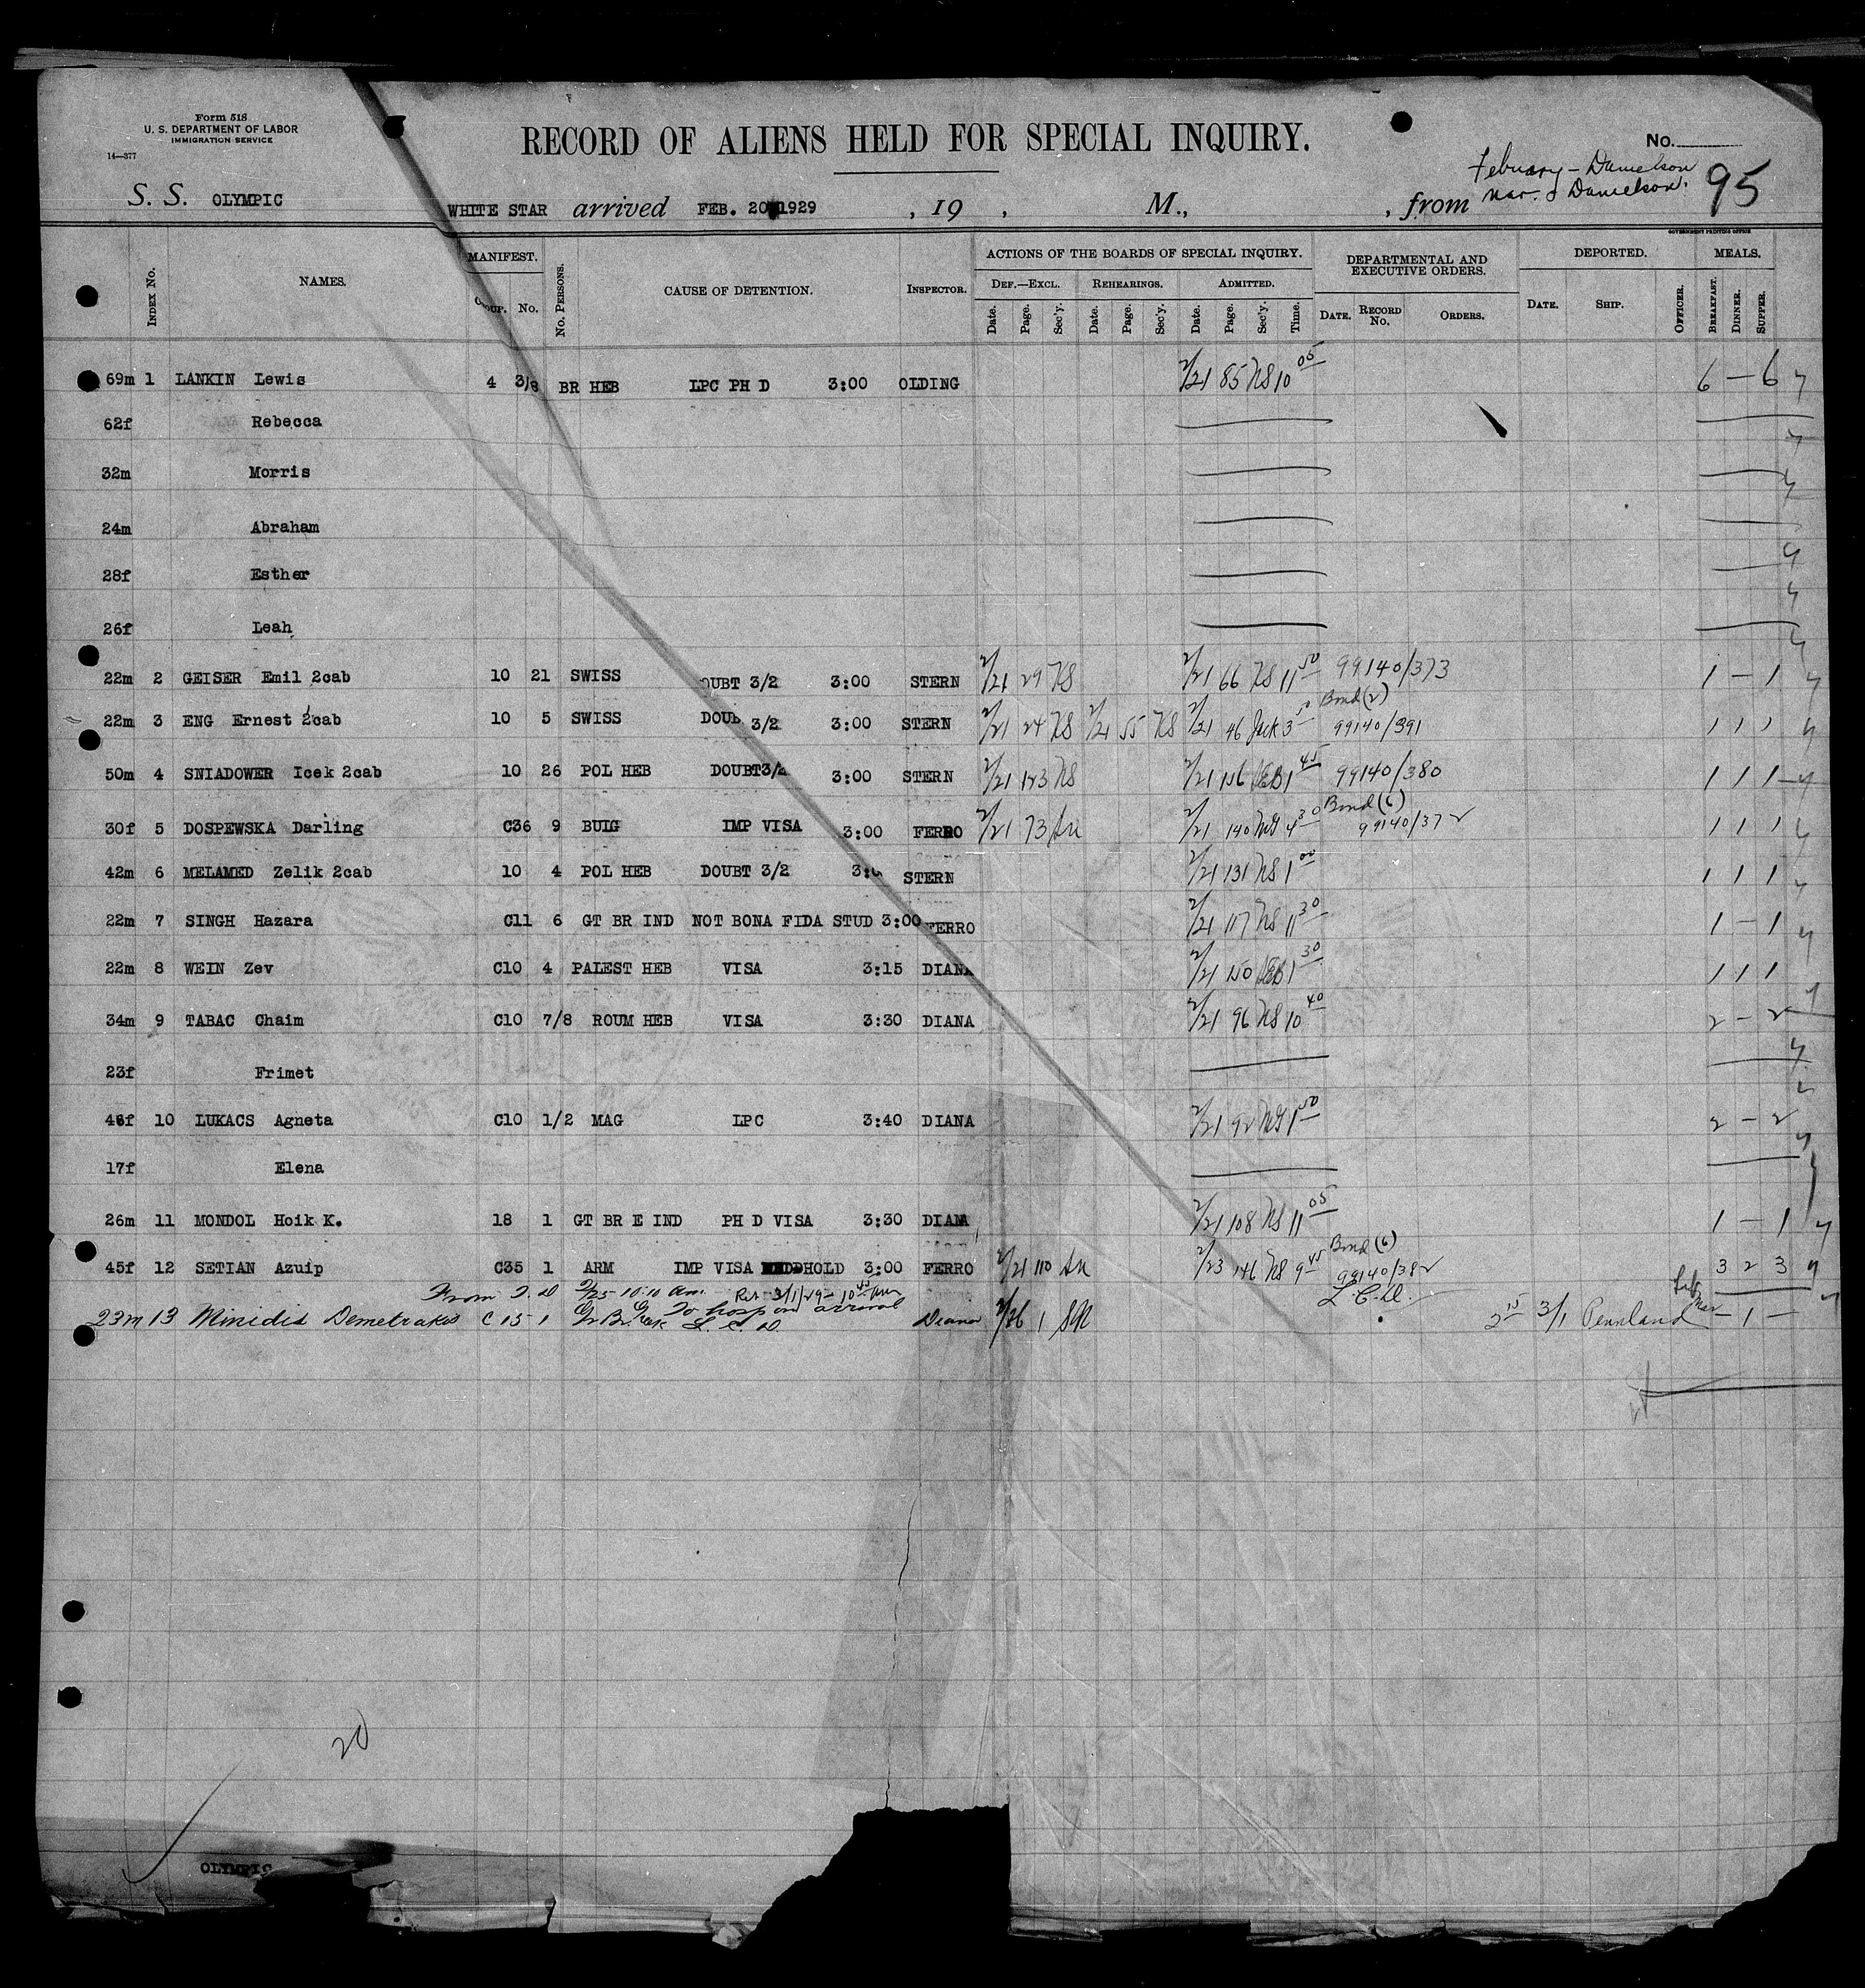 Form 518
U. S. DEPARTMENT OF LABOR
IMMIGRATION SERVICE
14—377
RECORD OF ALIENS HELD FOR SPECIAL INQUIRY.
No.
February - Danielson
Mar. Danielson.
95
S. S. OLYMPIC WHITE STAR arrived FEB. 20 1929 , 19 , M., , from
GOVERNMENT PRINTING OFFICE
INDEX No. NAMES. MANIFEST. No. PERSONS. CAUSE OF DETENTION. INSPECTOR. ACTIONS OF THE BOARDS OF SPECIAL INQUIRY. DEPARTMENTAL AND EXECUTIVE ORDERS. DEPORTED. MEALS.
No. DEF.—EXCL. REHEARINGS. ADMITTED.
Date. Page. Sec'y. Date. Page. Sec'y. Date. Page. Sec'y. Time. DATE. RECORD No. ORDERS. DATE. SHIP. OFFICER. BREAKFAST. DINNER. SUPPER.
69m 1 LANKIN Lewis 4 3/8 BR HEB LPC PH D 3:00 OLDING 2/21 85 NS 10 05 6 — 6
62f Rebecca
32m Morris
24m Abraham
28f Esther
26f Leah
22m 2 GEISER Emil 2cab 10 21 SWISS OUBT 3/2 3:00 STERN 2/21 29 NS 2/21 66 NS 11 50 99140/373 1 — 1
22m 3 ENG Ernest 2cab 10 5 SWISS DOUB 3/2 3:00 STERN 2/21 24 NS 2/21 55 NS 2/21 46 Jack 3 50 Bond (2) 99140/391 1 1 1
50m 4 SNIADOWER Icek 2cab 10 26 POL HEB DOUBT3/2 3:00 STERN 2/21 123 NS 2/21 156 EB 1 45 99140/380 1 1 1
30f 5 DOSPEWSKA Darling C36 9 BUIG IMP VISA 3:00 FERRO 2/21 73 2/21 140 4 30 Bond (6) 99140/372 1 1 1
42m 6 MELAMED Zelik 2cab 10 4 POL HEB DOUBT 3/2 STERN 2/21 131 NS 1 00 1 1 1
22m 7 SINGH Hazara C11 6 GT BR IND NOT BONA FIDA STUD 3:00 FERRO 2/21 117 NS 11 30 1 — 1
22m 8 WEIN Zev C10 4 PALEST HEB VISA 3:15 DIANA 2/21 150 EB 1 30 1 1 1
34m 9 TABAC Chaim C10 7/8 ROUM HEB VISA 3:30 DIANA 2/21 96 NS 10 40 2 — 2
23f Frimet
46f 10 LUKACS Agneta C10 1/2 MAG LPC 3:40 DIANA 2/21 92 1 50 2 — 2
17f Elena
26m 11 MONDOL Hoik K. 18 1 GT BR E IND PH D VISA 3:30 DIANA 2/21 108 NS 11 05 1 — 1
45f 12 SETIAN Azuip C35 1 ARM IMP VISA HOLD 3:00 FERRO 2/21 110 2/23 146 NS 9 45 Bond (6) 99140/382 3 2 3
From 2/25 10:10 am. Ret 3/1/29 10 45 am
L. C. D.
23m 13 Minidis Demetrakis C 15 1 Gr Br. Greek To hosp on arrival Diana 2/26 1 SM 2 15 3/1 Pennland — 1 —
20
OLYMPIC